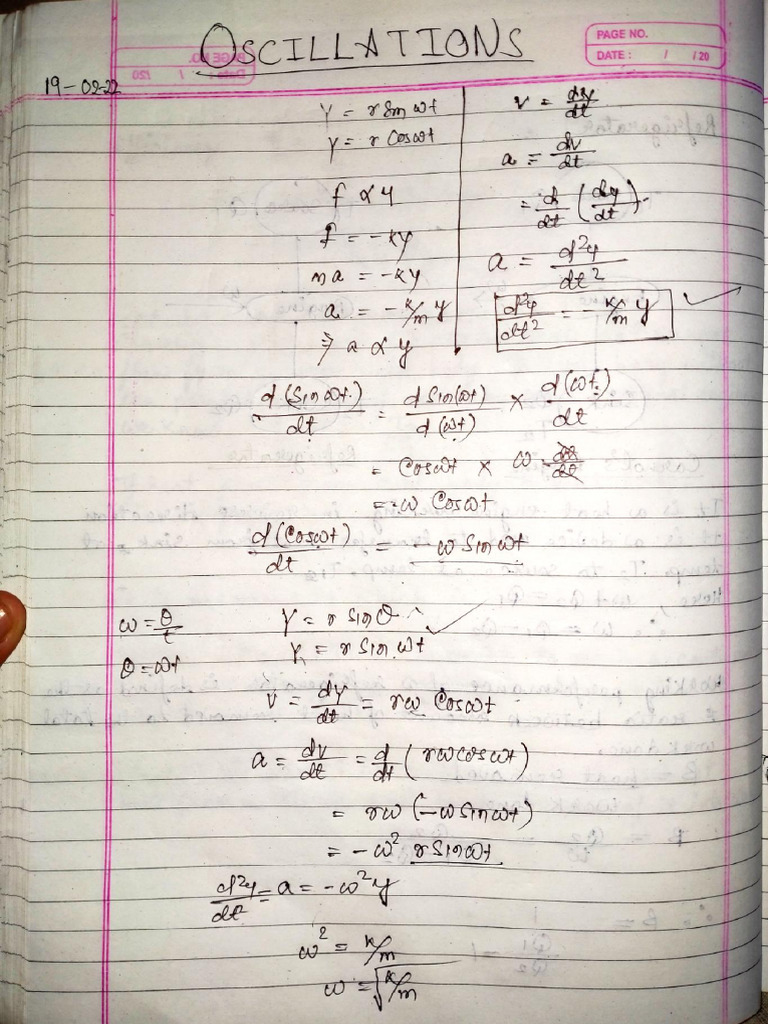 OSCILLATIONS
PAGE NO.
DATE : / / 20
19-02-22
Y = r Sin ωt
Y = r Cos ωt
f ∝ y
f = -Ky
ma = -Ky
a = -K/m y
⇒ a ∝ y
v = dy/dt
a = dv/dt
= d/dt (dy/dt)
a = d²y/dt²
d²y/dt² = -K/m y
d(Sin ωt)/dt = d Sin(ωt)/d(ωt) × d(ωt)/dt
= Cos ωt × ω
= ω Cos ωt
d(Cos ωt)/dt = -ω Sin ωt
ω = θ/t
θ = ωt
Y = r Sin θ
Y = r Sin ωt
V = dy/dt = rω Cos ωt
a = dv/dt = d/dt (rω cos ωt)
= rω (-ω Sin ωt)
= -ω² r Sin ωt
d²y/dt² = a = -ω² y
ω² = K/m
ω = √K/m